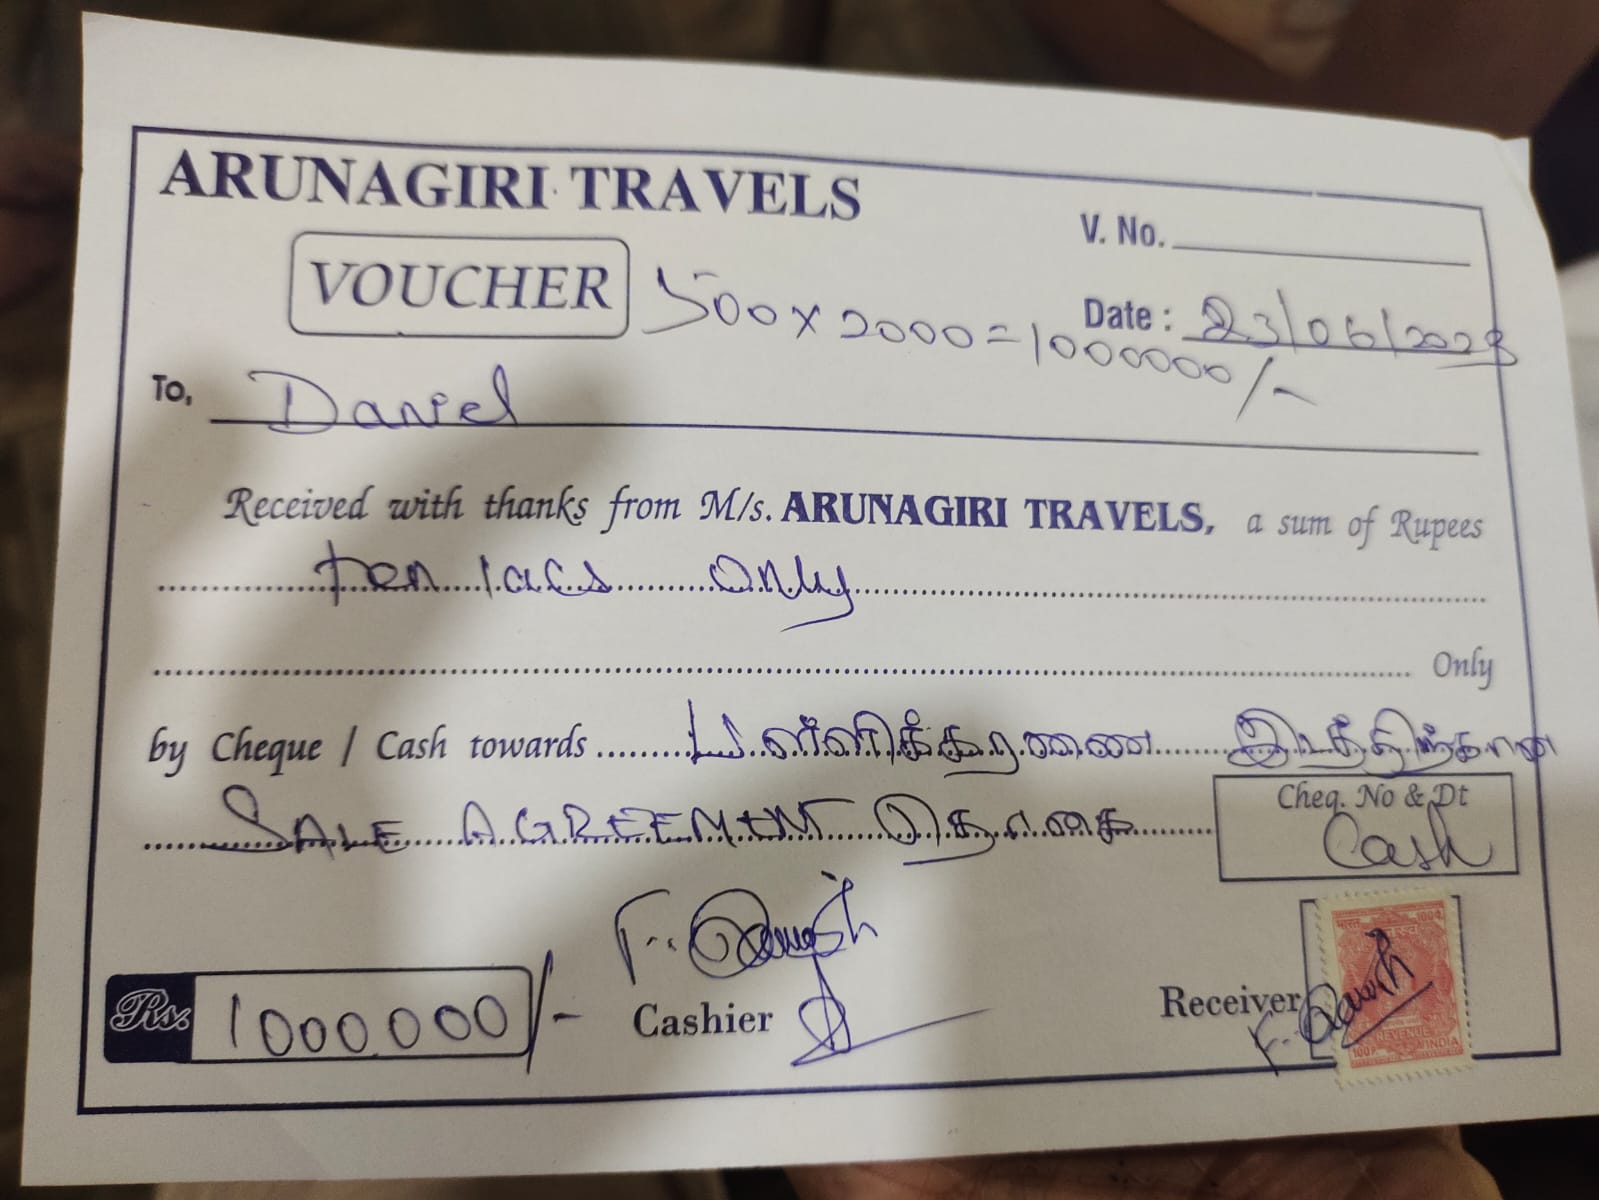 ARUNAGIRI TRAVELS
V. No.
VOUCHER
500 x 2000 = 1000000/-
Date : 23/06/2023
To, Daniel
Received with thanks from M/s. ARUNAGIRI TRAVELS, a sum of Rupees
ten lacs only
Only
by Cheque / Cash towards பள்ளிக்கரணை இடத்திற்கான
SALE AGREEMENT தொகை
Cheq. No & Dt
Cash
Rs. 1000000/-
Cashier
Receiver